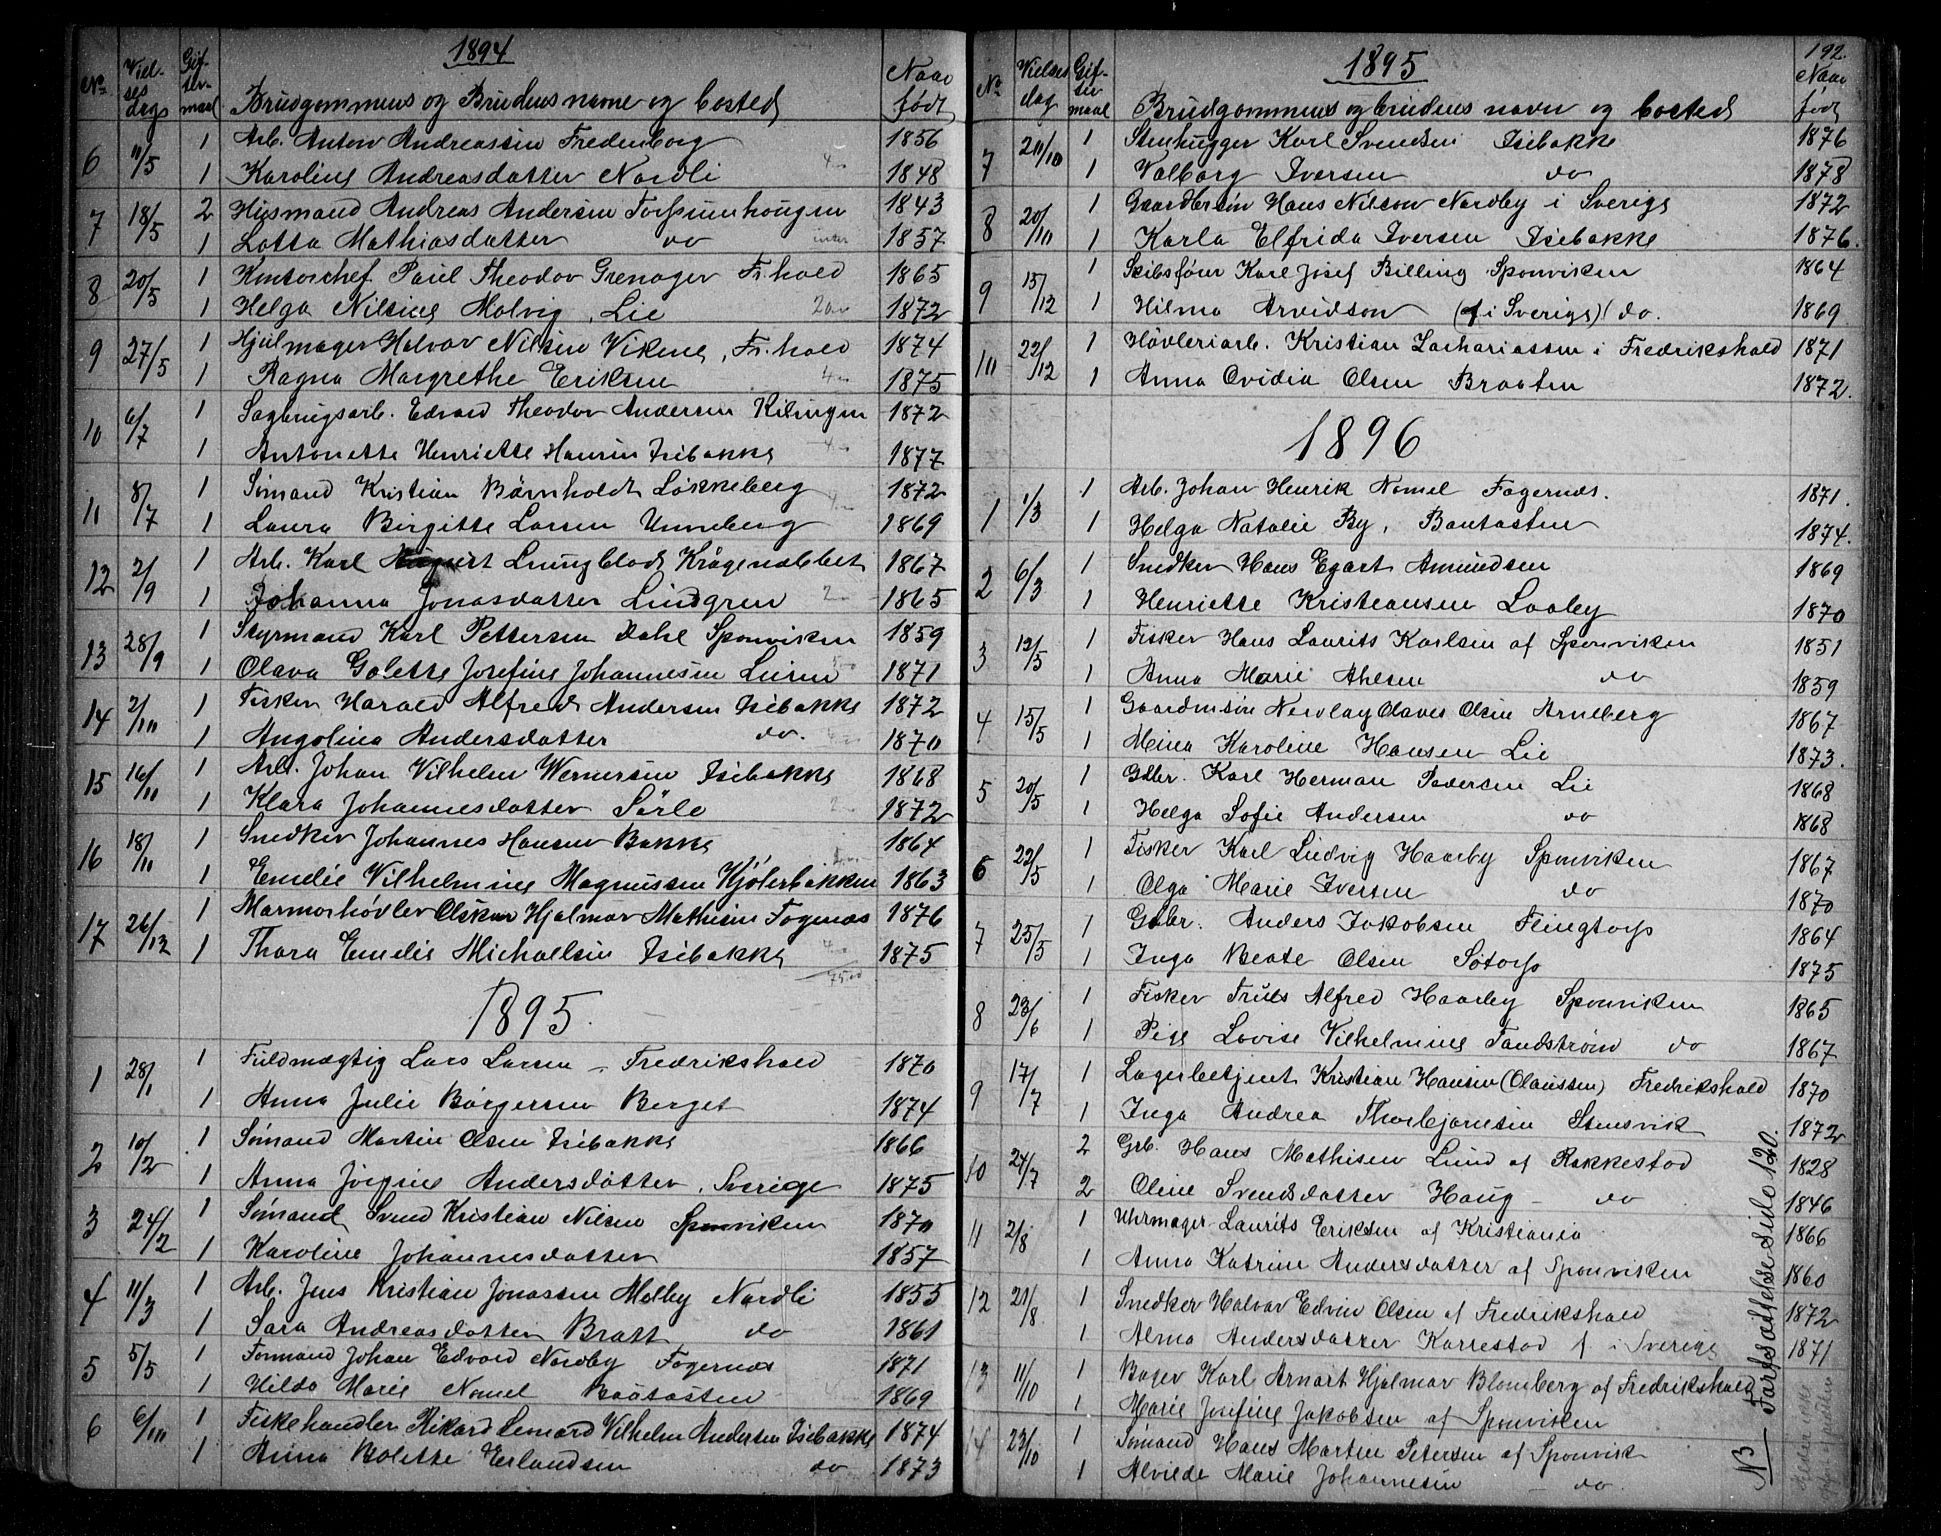 1894
No Viel-ses dag Gif-ter-maal Brudgommens og Brudens navne og bosted Naar født
6 11/5 1 Arb. Anton Andreassen Fredenborg 1856
1 Karoline Andreasdatter Nordli 1848
7 18/5 2 Husmand Andreas Andersen Torpumhougen 1843
1 Lotta Mathiasdatter do 1857
8 20/5 1 Kontorchef Paul Theodor Grenager Fr.hald 1865
1 Helga Nilsine Molvig, Lie 1872
9 27/5 1 Hjulmager Halvor Nilsen Vikene, Fr.hald 1874
1 Ragna Margrethe Eriksen 1875
10 6/7 1 Sagbrugsarb. Edvard Theodor Andersen Kilingen 1872
1 Antonette Henriette Hansen Isebakke 1877
11 8/7 1 Sømand Kristian Bårnholdt Løkkeberg 1872
1 Laura Birgitte Larsen Unneberg 1869
12 2/9 1 Arb. Karl August Ljungblad Krågenæbbet 1867
1 Johanna Jonasdatter Lindgren 1865
13 28/9 1 Styrmand Karl Pettersen Dahl Sponviken 1859
1 Olava Golette Josefine Johannesen Liren 1871
14 2/10 1 Fisker Harald Alfred Andersen Isebakke 1872
1 Angolina Andersdatter do. 1870
15 16/11 1 Arb. Johan Vilhelm Wernersen Isebakke 1868
1 Klara Johannesdatter Sørle 1872
16 18/11 1 Snedker Johannes Hansen Bakke 1864
1 Emelie Vilhelmine Magnussen Kjølerbakken 1863
17 26/12 1 Marmorhøvler Oskar Hjalmar Mathisen Fagernæs 1876
1 Thora Emelie Michaelsen Isebakke 1875
1895.
1 28/1 1 Fuldmægtig Lars Larsen - Fredrikshald 1870
1 Anna Julie Børgersen Berget 1874
2 10/2 1 Sømand Martin Olsen Isebakke 1866
1 Anna Jørgine Andersdatter, Sverige 1875
3 24/2 1 Sømand Svend Kristian Nilsen Sponviken 1870
1 Karoline Johannesdatter 1857
4 11/3 1 Arb. Jens Kristian Jonassen Melby Nordli 1855
1 Sara Andreasdatter Bratt do 1861
5 5/5 1 Formand Johan Edvard Nordby Fagernæs 1871
1 Hilda Marie Nomel Bautasten 1869
6 6/10 1 Fiskehandler Rikard Leonard Vilhelm Andersen Isebakke 1874
1 Anna Bolette Erlandsen do 1873
192.
1895
No Vielses dag Gif-ter maal Brudgommens og brudens navn og bosted Naar født
7 20/10 1 Stenhugger Karl Svendsen Isebakke 1876
1 Valborg Iversen do 1878
8 20/10 1 Gaardbrsøn Hans Nilson Nordby i Sverige 1872
1 Karla Elfrida Iversen Isebakke 1876.
9 15/12 1 Skibsfører Karl Josef Billing Sponviken 1864
1 Hilma Arvidson (f i Sverige) do. 1869
10 22/12 1 Høvleriarb. Kristian Zachariassen i Fredrikshald 1871
1 Anna Ovidia Olsen Braaten 1872.
1896
1 1/3 1 Arb. Johan Henrik Nomel Fagernæs. 1871.
1 Helga Natalie By, Bautasten 1874.
2 6/3 1 Snedker Hans Egart Amundsen 1869
1 Henriette Kristiansen Laaby 1870
3 12/5 1 Fisker Hans Laurits Karlsen af Sponviken 1851
1 Anna Marie Ahlsen do 1859
4 15/5 1 Gaardmsøn Nicolay Olaves Olsen Arneberg 1867
1 Mina Karoline Hansen Lie 1873.
5 20/5 1 Gdbr. Karl Herman Pedersen Lie 1868
1 Helga Sofie Andersen do 1868
6 22/5 1 Fisker Karl Ludvig Haarby Sponviken 1867
1 Olga Marie Iversen do 1870
7 25/5 1 Gdbr. Anders Jakobsen Flingtorp 1864
1 Inga Beate Olsen Søtorp 1875
8 23/6 1 Fisker Truls Alfred Haarby Sponviken 1865
1 Pige Lovise Vilhelmine Sandstrøm do 1867
9 17/7 1 Lagerbetjent Kristian Hansen (Olaussen) Fredrikshald 1870
1 Inga Andrea Thorbjørnsen Stensvik 1872
10 24/7 2 Grb. Hans Mathisen Lund af Rakkestad 1828
2 Oline Svendsdatter Haug - do 1846
11 2/8 1 Uhrmager Laurits Eriksen af Kristiania 1866
1 Anna Katrine Andersdatter af Sponviken 1860
12 21/8 1 Snedker Halvor Edvin Olsen af Fredrikshald 1872
1 Alma Andersdatter Karrestad f i Sverige 1871
13 11/10 1 Bager Karl Arnart Hjalmar Blomberg af Fredrikshald
1 Marie Josefine Jakobsen af Sponviken
14 23/10 1 Sømand Hans Marten Petersen af Sponvik
1 Alvilde Marie Johannesen - do.
NB Fortsættelse side 120.